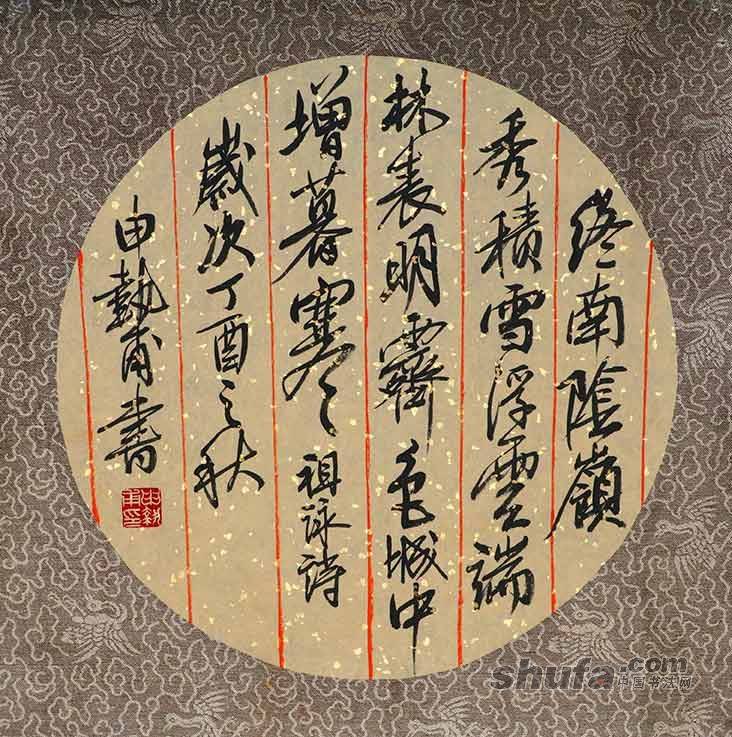 終南陰嶺
秀積雪浮雲端
林表明霽色城中
增暮寒 祖詠詩
歲次丁酉之秋
申執甫書
申執甫印
shufa.com
中国书法网